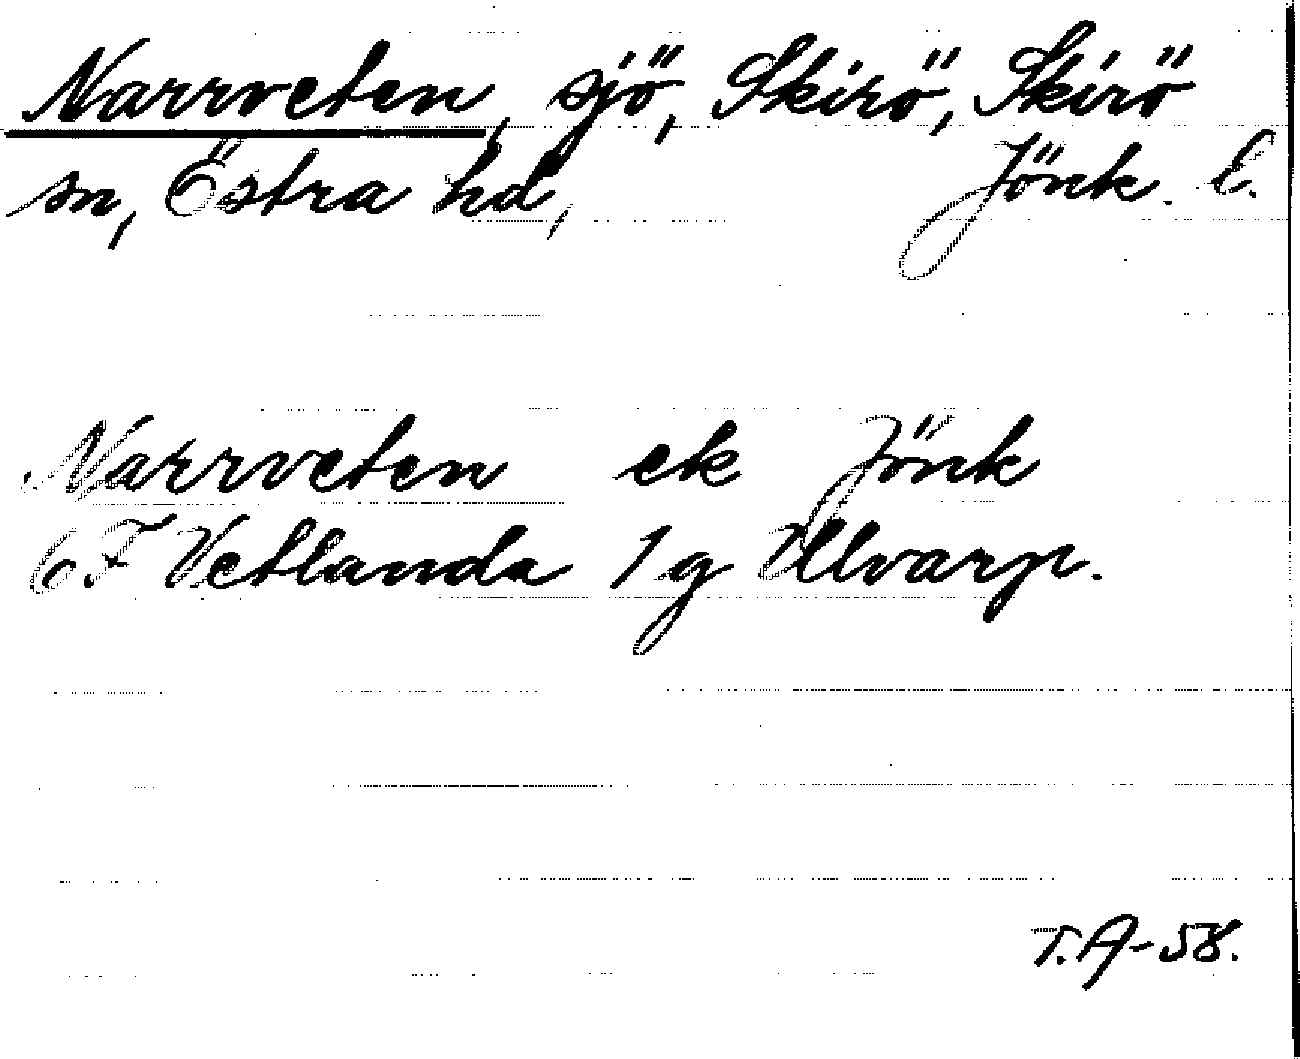 Narrveten, sjö, Skirö, Skirö
sn, Östra hd, Jönk. l.
Narrveten ek Jönk
6 F Vetlanda 1 g Ulvarp.
T.A-58.